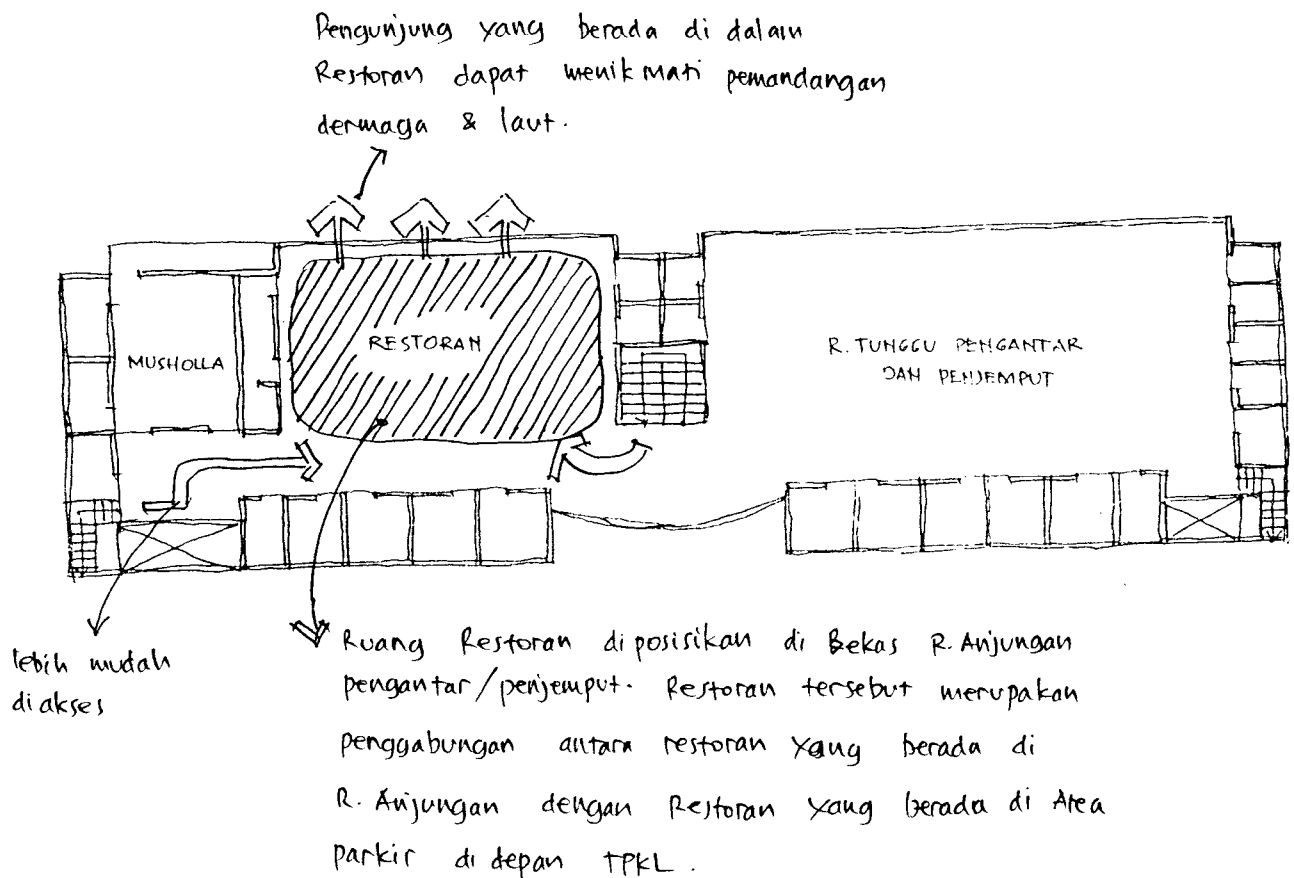 Pengunjung yang berada di dalam
Restoran dapat menikmati pemandangan
dermaga & laut.
MUSHOLLA
RESTORAN
R. TUNGGU PENGANTAR
DAN PENJEMPUT
lebih mudah
diakses
Ruang Restoran diposisikan di Bekas R. Anjungan
pengantar/penjemput. Restoran tersebut merupakan
penggabungan antara restoran yang berada di
R. Anjungan dengan Restoran yang berada di Area
parkir di depan TPKL.